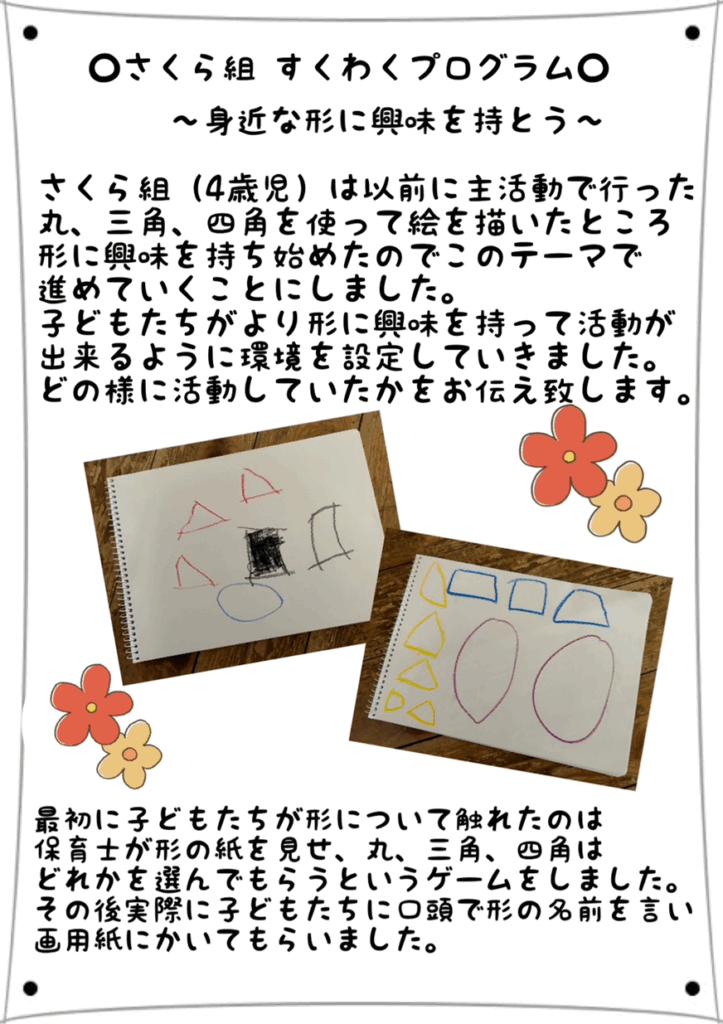 〇さくら組 すくわくプログラム〇
～身近な形に興味を持とう～
さくら組（4歳児）は以前に主活動で行った
丸、三角、四角を使って絵を描いたところ
形に興味を持ち始めたのでこのテーマで
進めていくことにしました。
子どもたちがより形に興味を持って活動が
出来るように環境を設定していきました。
どの様に活動していたかをお伝え致します。
最初に子どもたちが形について触れたのは
保育士が形の紙を見せ、丸、三角、四角は
どれかを選んでもらうというゲームをしました。
その後実際に子どもたちに口頭で形の名前を言い
画用紙にかいてもらいました。